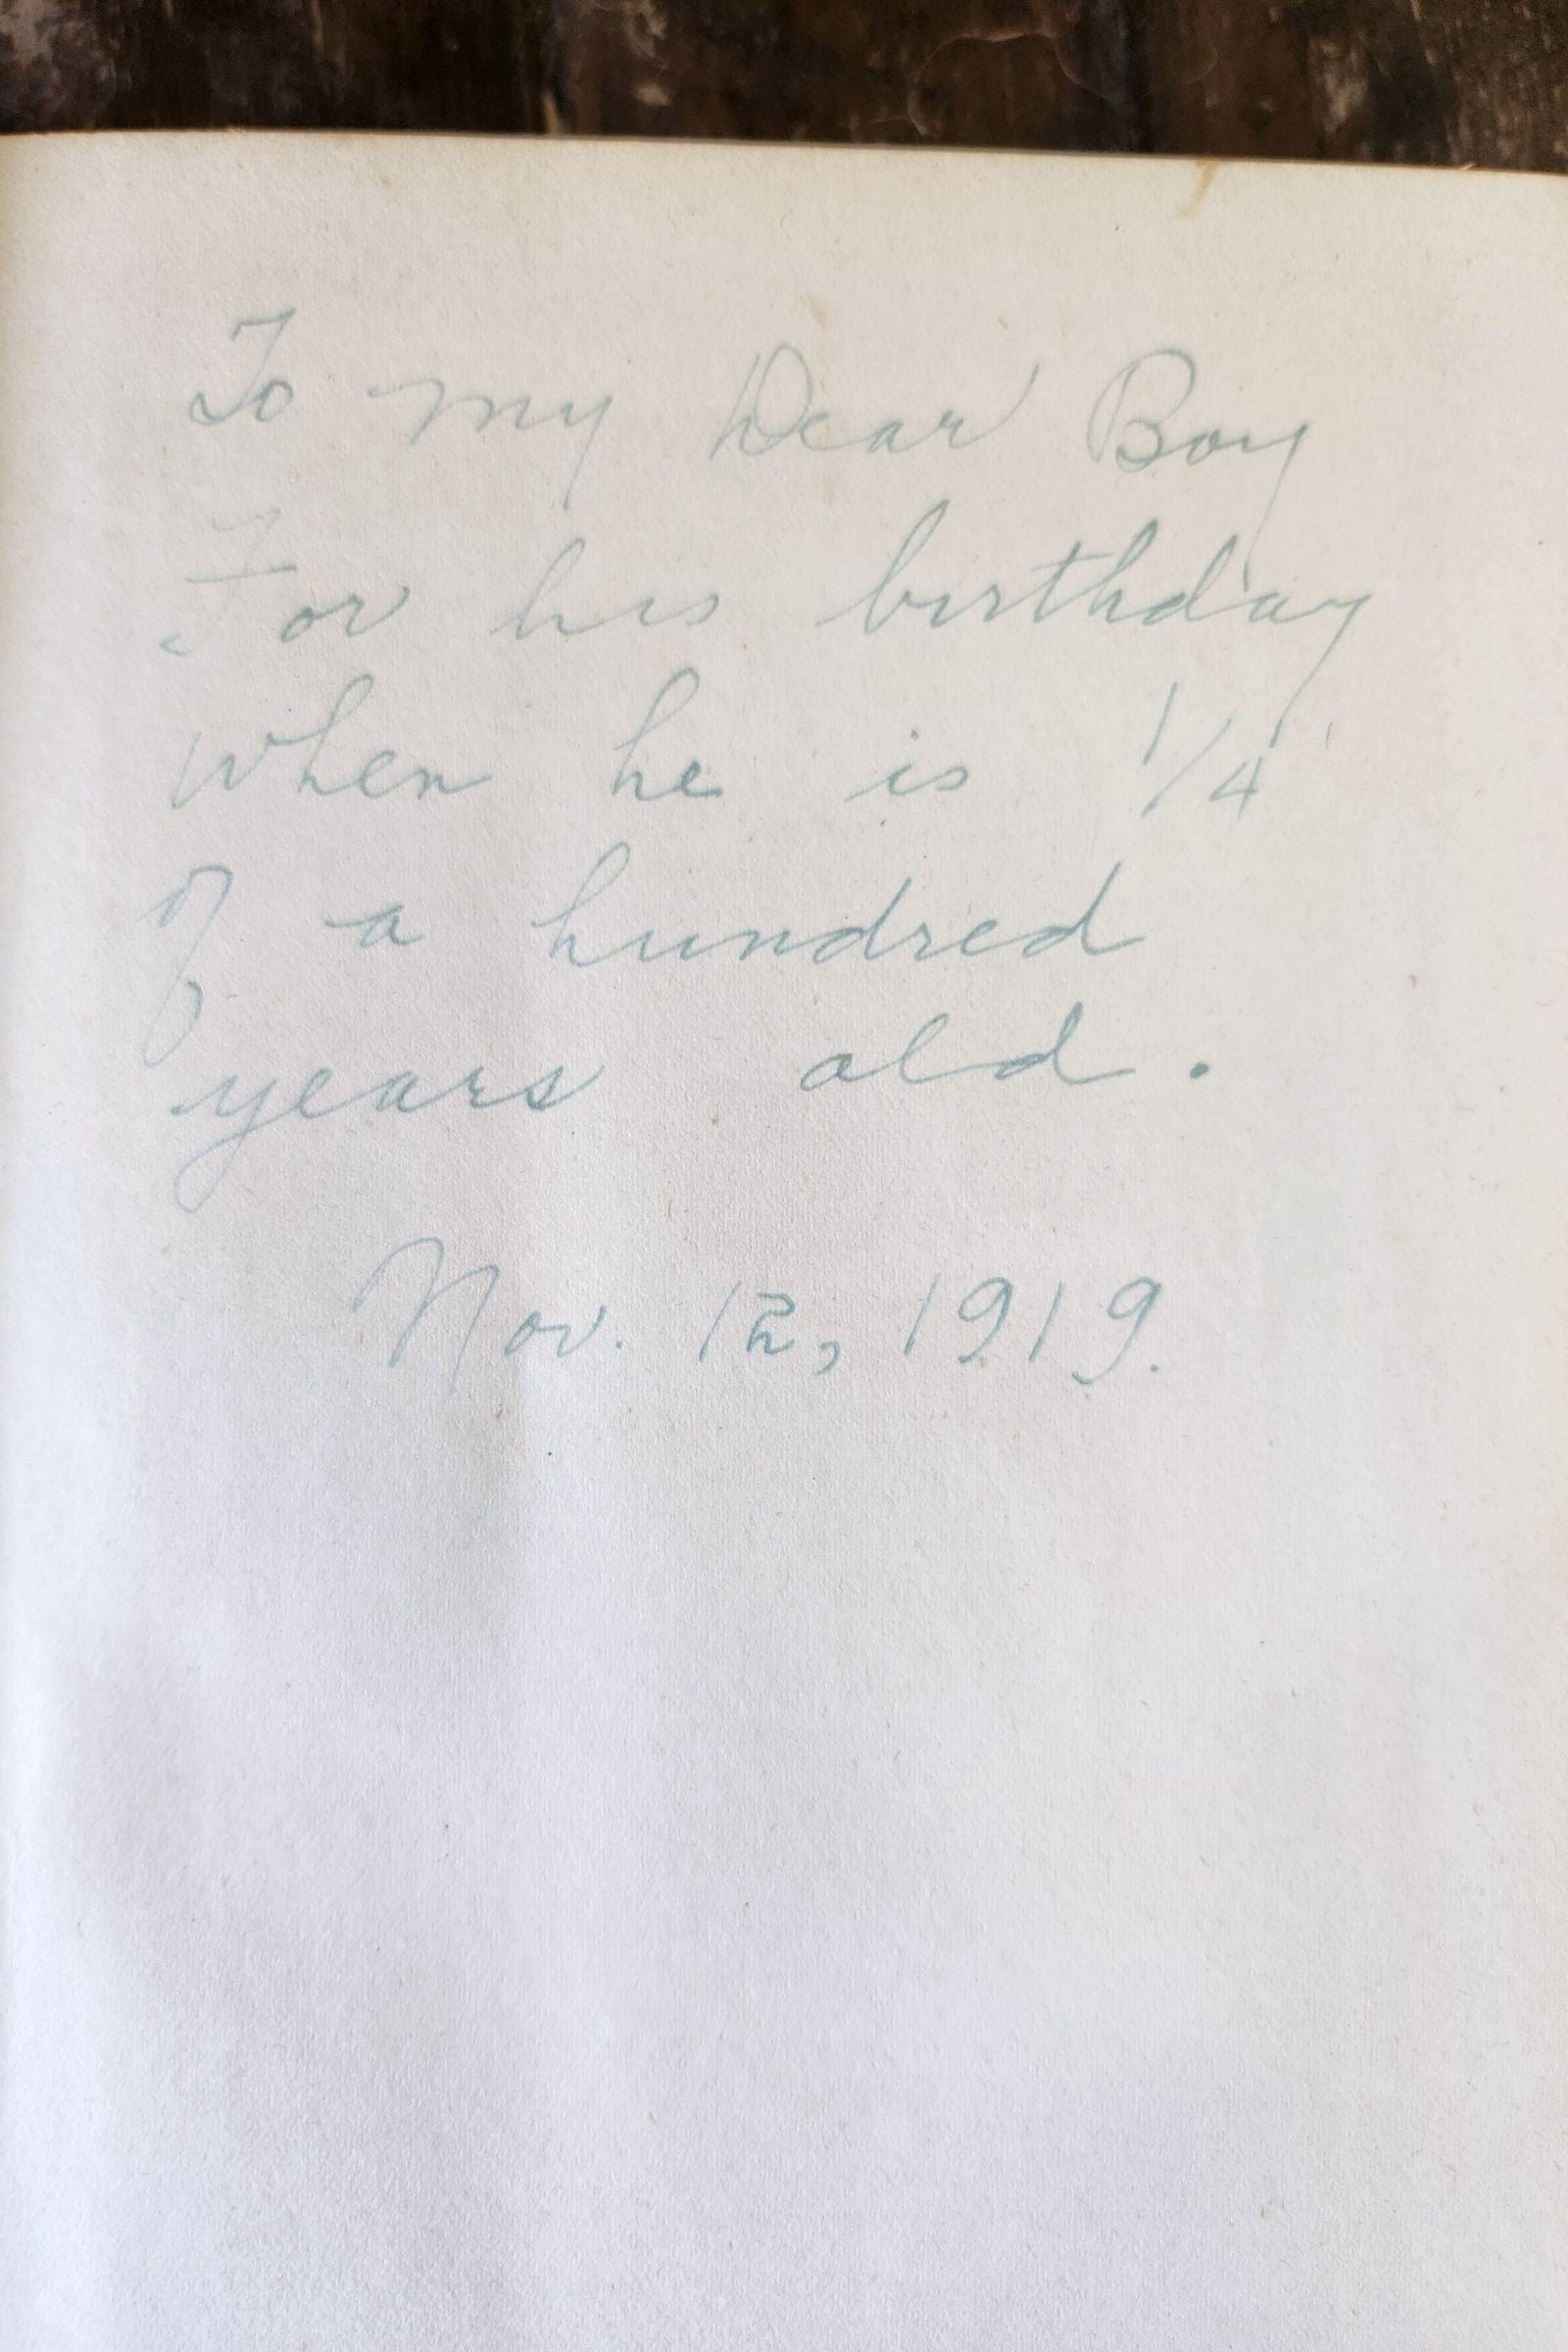 To my Dear Boy
For his birthday
when he is 1/4
of a hundred
years old.
Nov. 12, 1919.